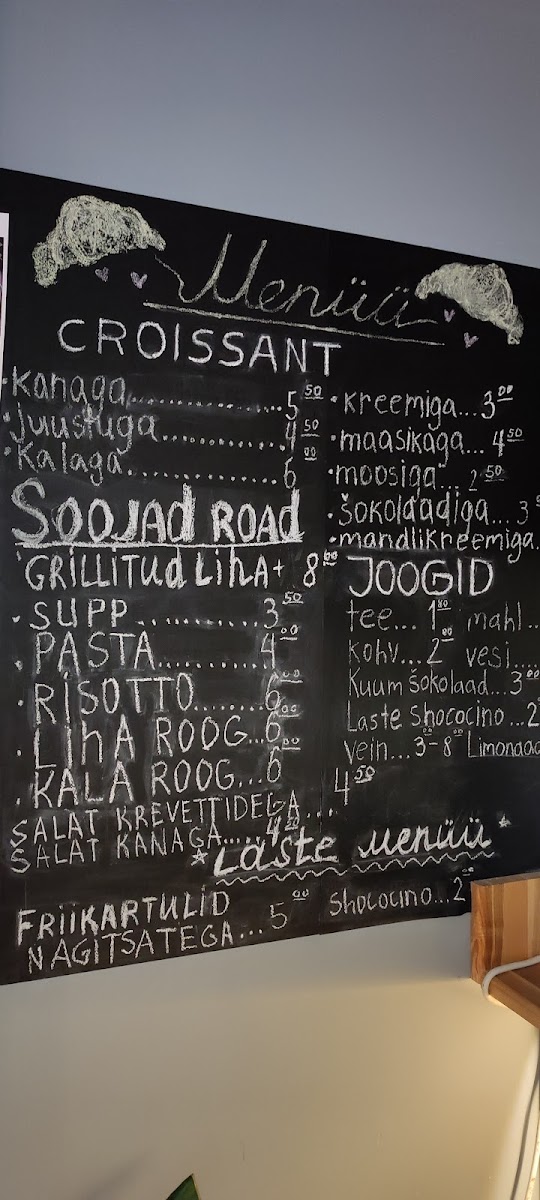 Menüü
CROISSANT
• Kanaga............5 50
• Juustuga...........4 50
• Kalaga............6 00
• Kreemiga...3 00
• maasikaga...4 50
• moosiga...2 50
• šokolaadiga...3
• mandlikreemiga.
SOOJAD ROAD
GRILLITUD LIHA+ 8 00
• SUPP..........3 50
• PASTA.........4 00
• RISOTTO.......6 00
• LIHA ROOG...6 00
• KALA ROOG...6 00
SALAT KREVETTIDEGA.... 4 50
SALAT KANAGA....4 50
JOOGID
tee...1 80 mahl..
kohv...2 00 vesi....
Kuum šokolaad...3 00
Laste Shococino...2
vein...3 00-8 00 Limonaad
* Laste menüü *
FRIIKARTULID
NAGITSATEGA...5 00
Shococino...2 00